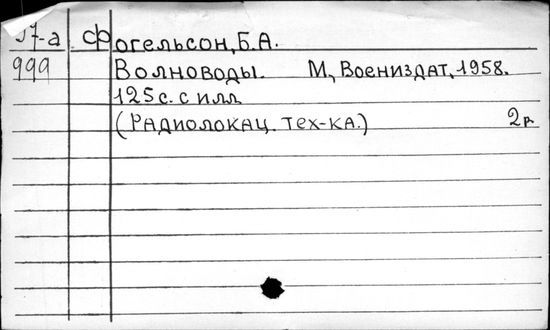 17-а Фогельсон, Б.А.
999 Волноводы. М, Воениздат, 1958.
125 с. с илл
(Радиолокац. тех-ка.) 2р